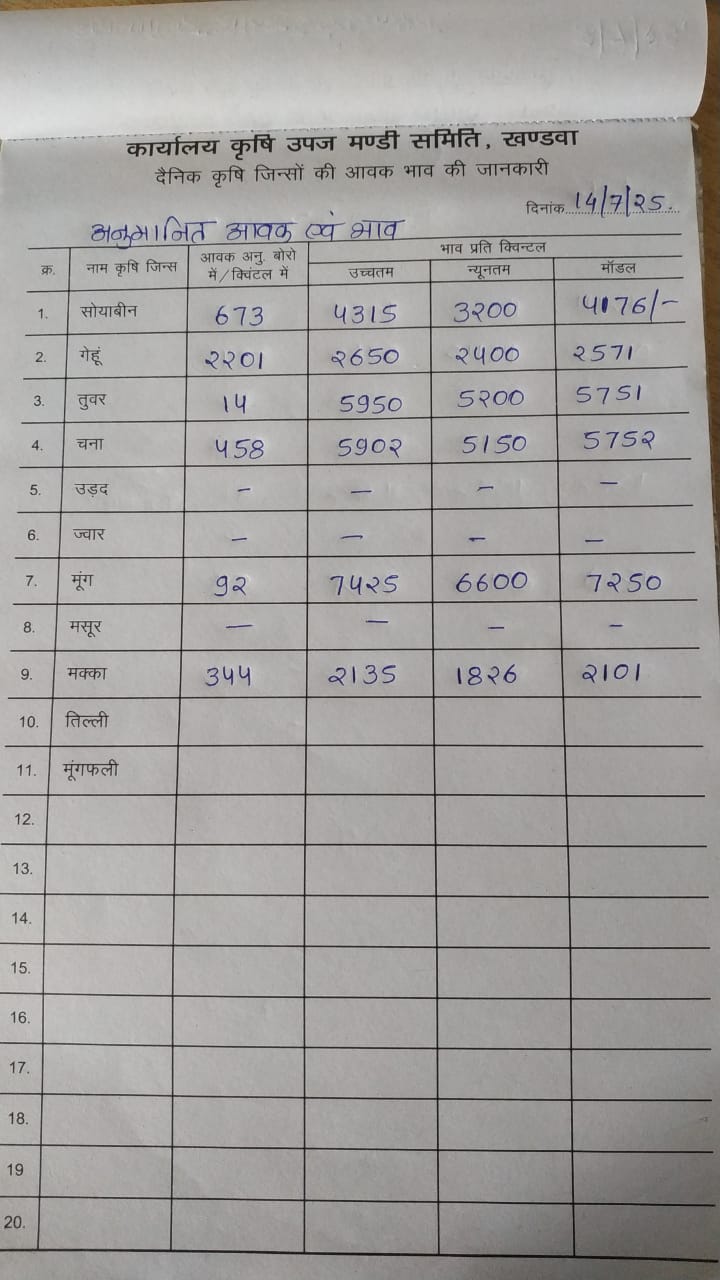 कार्यालय कृषि उपज मण्डी समिति, खण्डवा
दैनिक कृषि जिन्सों की आवक भाव की जानकारी
दिनांक 14/7/25.
अनुमानित आवक एवं भाव
क्र. नाम कृषि जिन्स आवक अनु. बोरो में/क्विंटल में भाव प्रति क्विन्टल
उच्चतम न्यूनतम मॉडल
1. सोयाबीन 673 4315 3२00 4176/-
2. गेहूं २२01 २650 २400 २571
3. तुवर 14 5950 5२00 5751
4. चना 458 590२ 5150 575२
5. उड़द - - - -
6. ज्वार - - - -
7. मूंग 9२ 74२5 6600 7२50
8. मसूर - - - -
9. मक्का 344 २135 18२6 २101
10. तिल्ली
11. मूंगफली
12.
13.
14.
15.
16.
17.
18.
19
20.